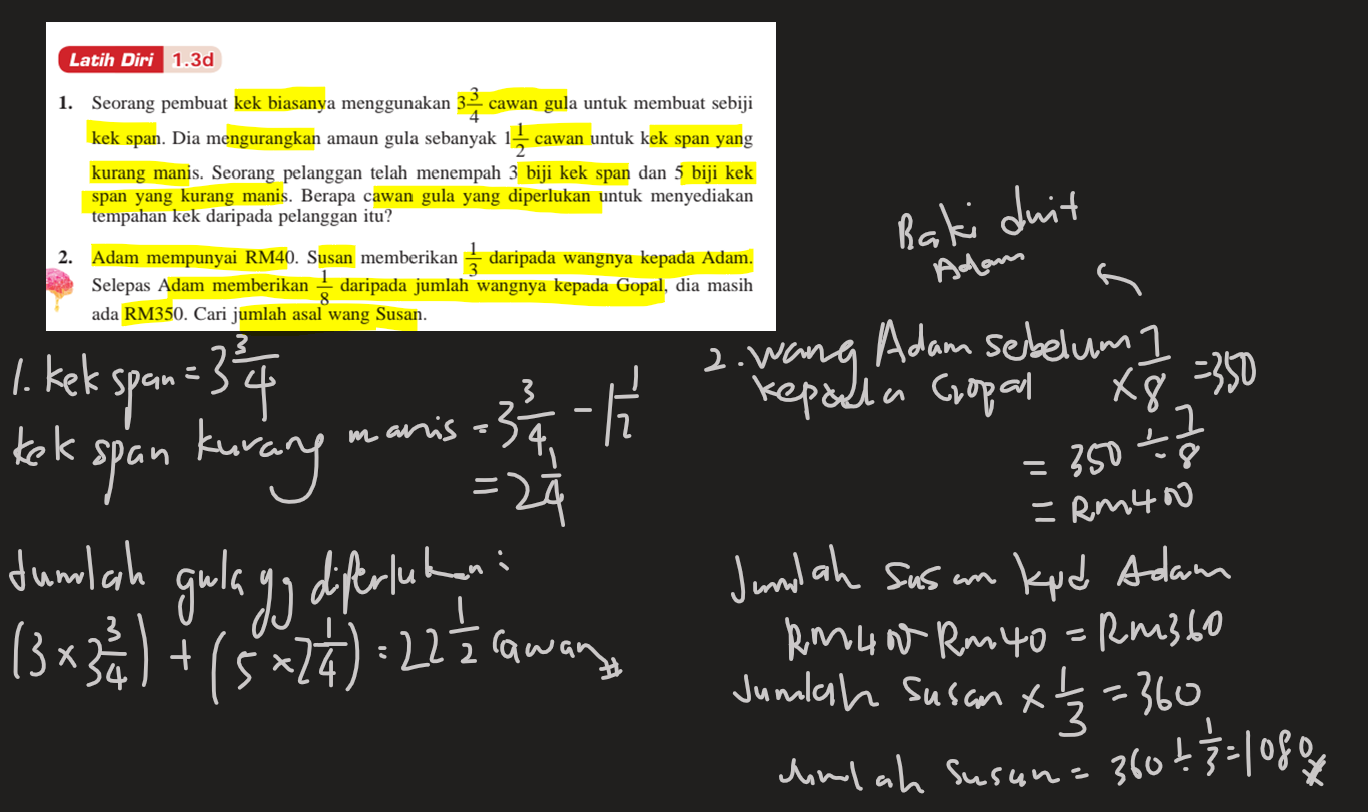 Latih Diri 1.3d
1. Seorang pembuat kek biasanya menggunakan 3 3/4 cawan gula untuk membuat sebiji
kek span. Dia mengurangkan amaun gula sebanyak 1 1/2 cawan untuk kek span yang
kurang manis. Seorang pelanggan telah menempah 3 biji kek span dan 5 biji kek
span yang kurang manis. Berapa cawan gula yang diperlukan untuk menyediakan
tempahan kek daripada pelanggan itu?
2. Adam mempunyai RM40. Susan memberikan 1/3 daripada wangnya kepada Adam.
Selepas Adam memberikan 1/8 daripada jumlah wangnya kepada Gopal, dia masih
ada RM350. Cari jumlah asal wang Susan.
1. kek span = 3 3/4
kek span kurang manis = 3 3/4 - 1 1/2
= 2 1/4
Jumlah gula yg diperlukan:
(3 × 3 3/4) + (5 × 2 1/4) = 22 1/2 cawan
Baki duit
Adam
2. wang Adam sebelum
kepada Gopal × 7/8 = 350
= 350 ÷ 7/8
= RM400
Jumlah Susan kpd Adam
RM400 - RM40 = RM360
Jumlah Susan × 1/3 = 360
Jumlah Susan = 360 ÷ 1/3 = 1080